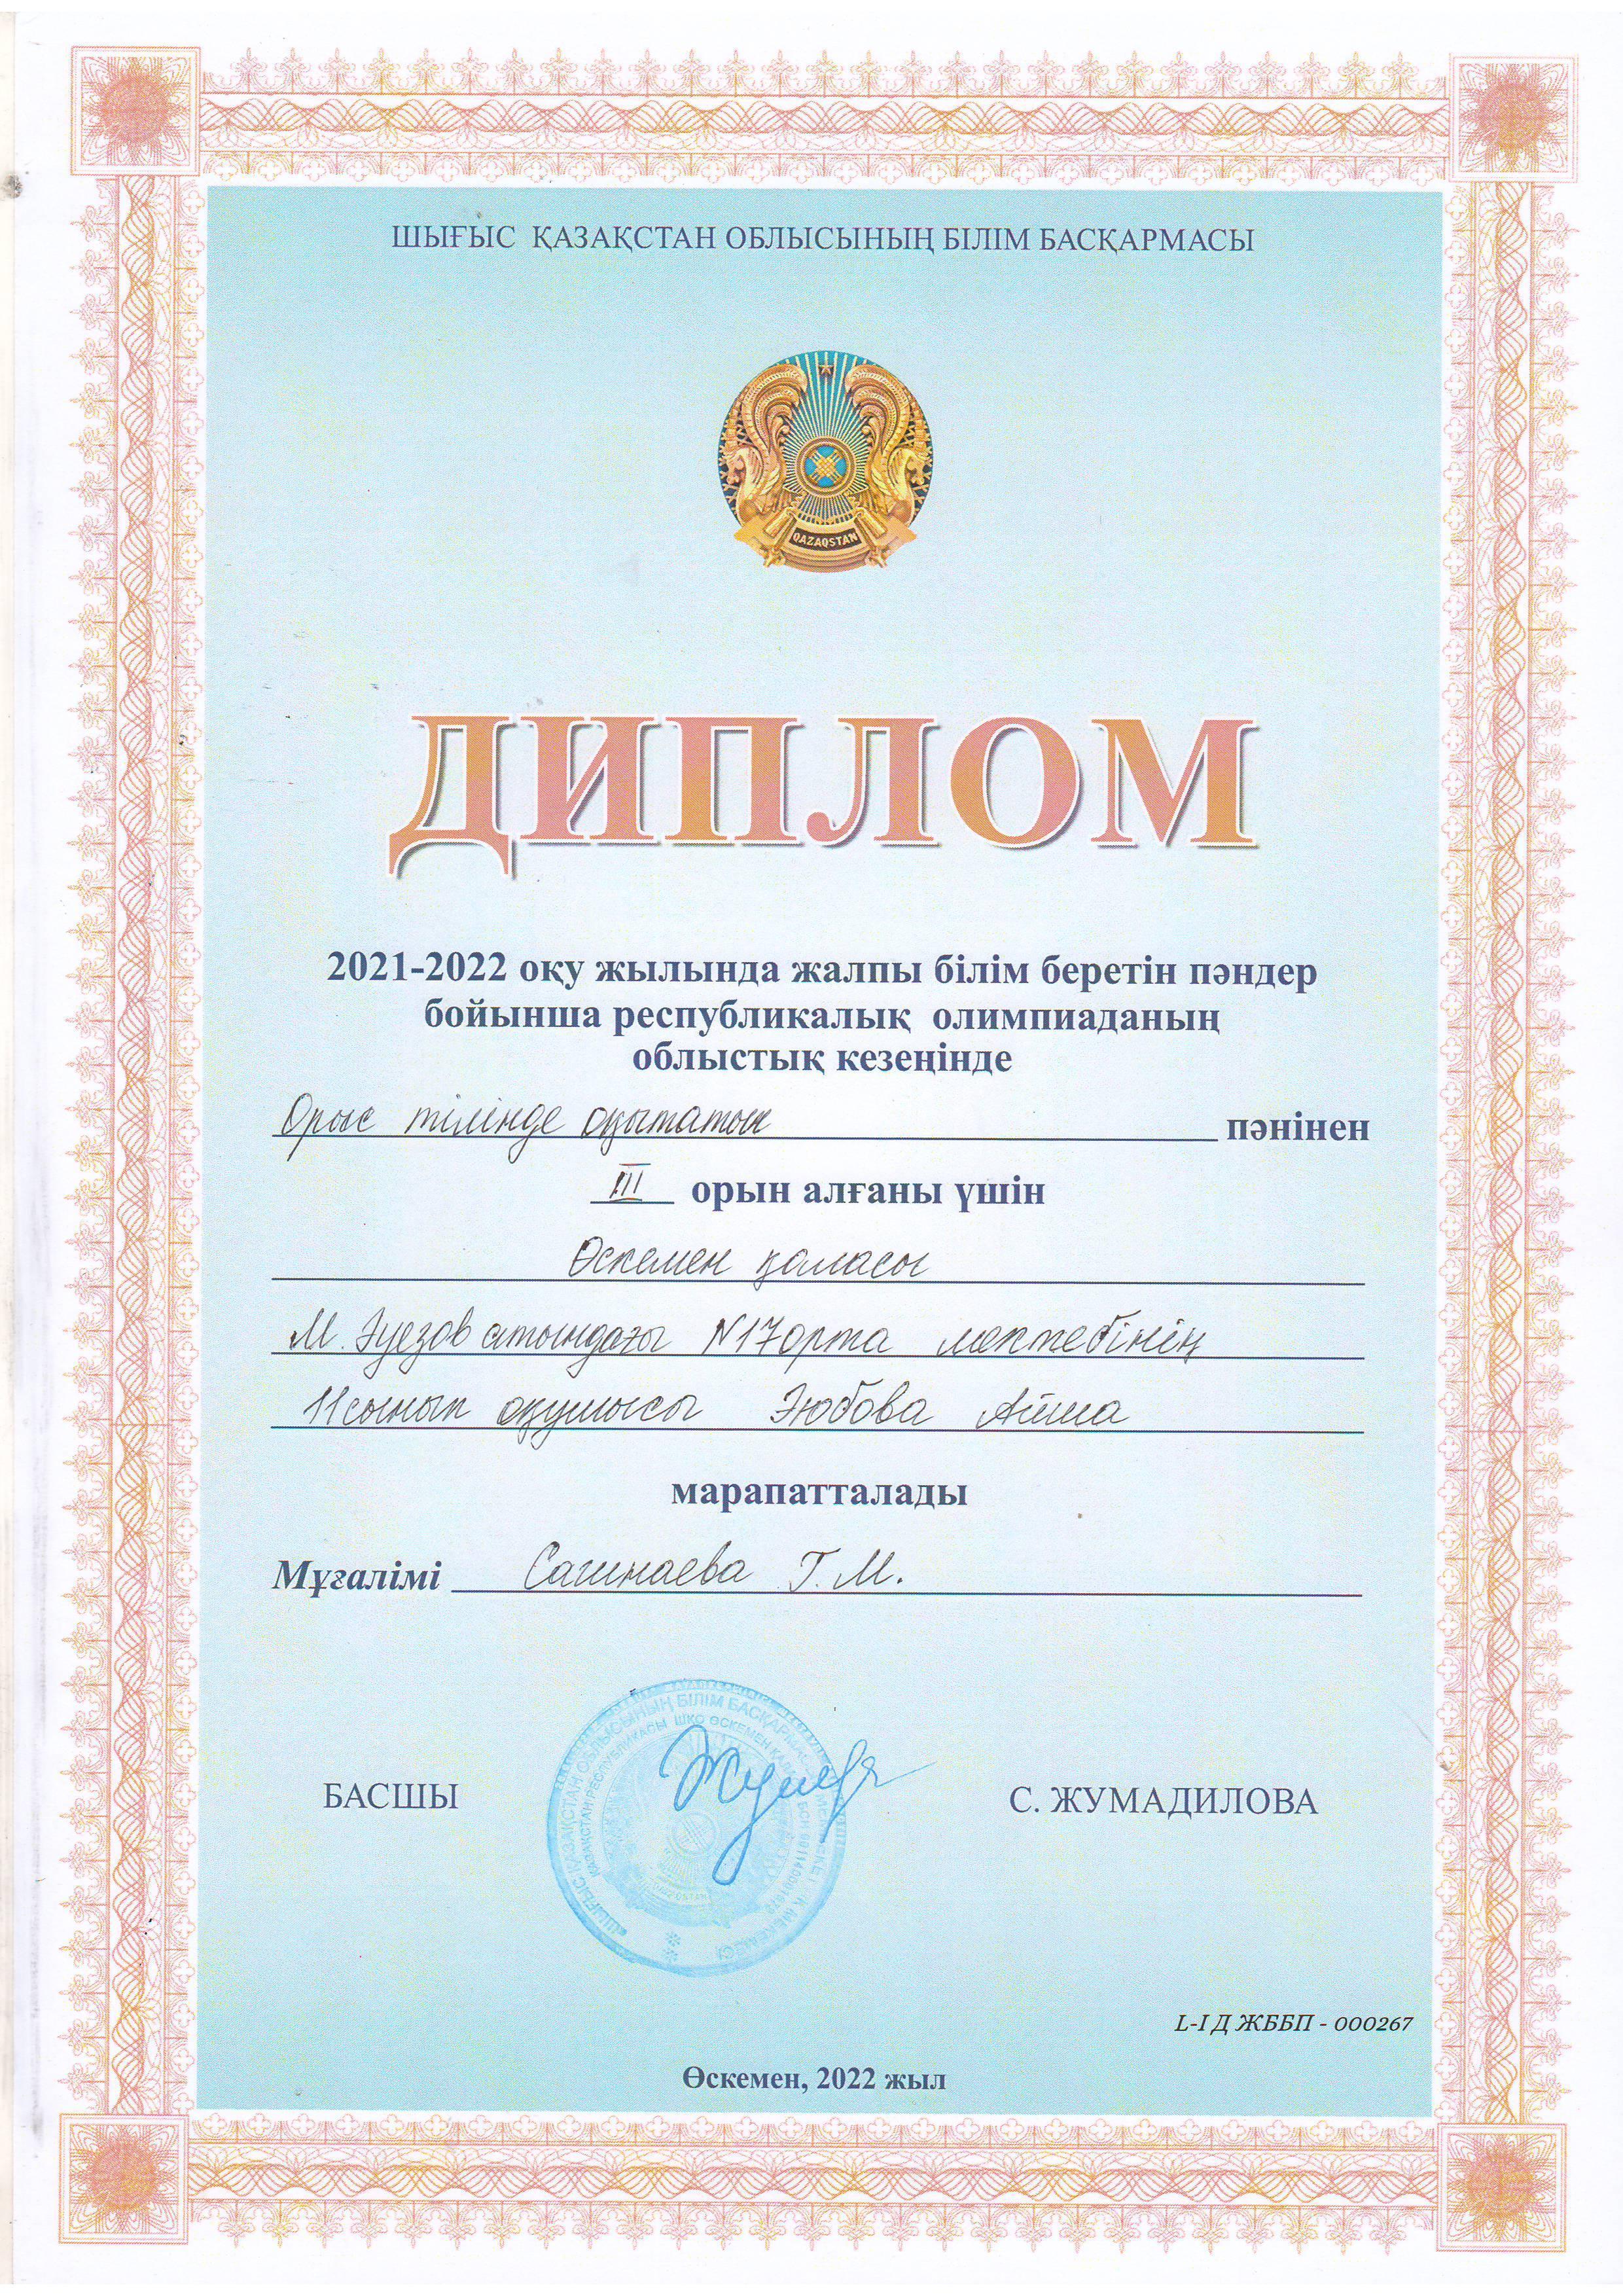 ШЫҒЫС ҚАЗАҚСТАН ОБЛЫСЫНЫҢ БІЛІМ БАСҚАРМАСЫ
QAZAQSTAN
ДИПЛОМ
2021-2022 оқу жылында жалпы білім беретін пәндер
бойынша республикалық олимпиаданың
облыстық кезеңінде
Орыс тілінде оқытатын пәнінен
III орын алғаны үшін
Өскемен қаласы
М. Әуезов атындағы №17 орта мектебінің
11 сынып оқушысы Эюбова Айша
марапатталады
Мұғалімі Сагинаева Г. М.
БАСШЫ
С. ЖУМАДИЛОВА
L-I Д ЖББП - 000267
Өскемен, 2022 жыл